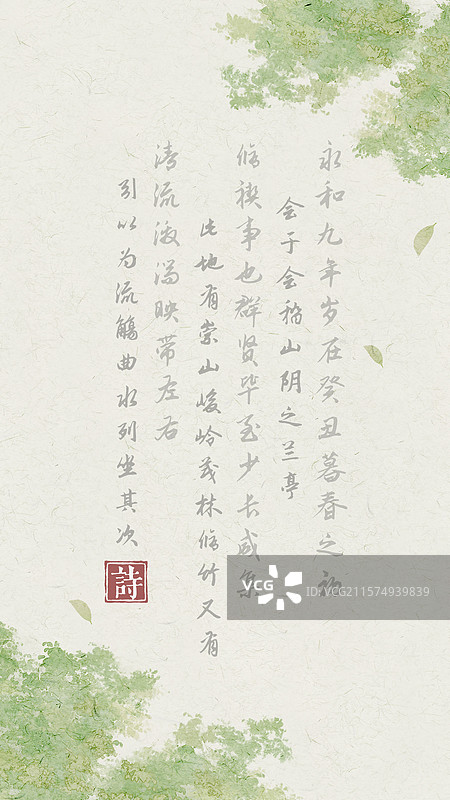 永和九年岁在癸丑暮春之初
会于会稽山阴之兰亭
修禊事也群贤毕至少长咸集
此地有崇山峻岭茂林修竹又有
清流激湍映带左右
引以为流觞曲水列坐其次
詩
VCG
VCG211574939839